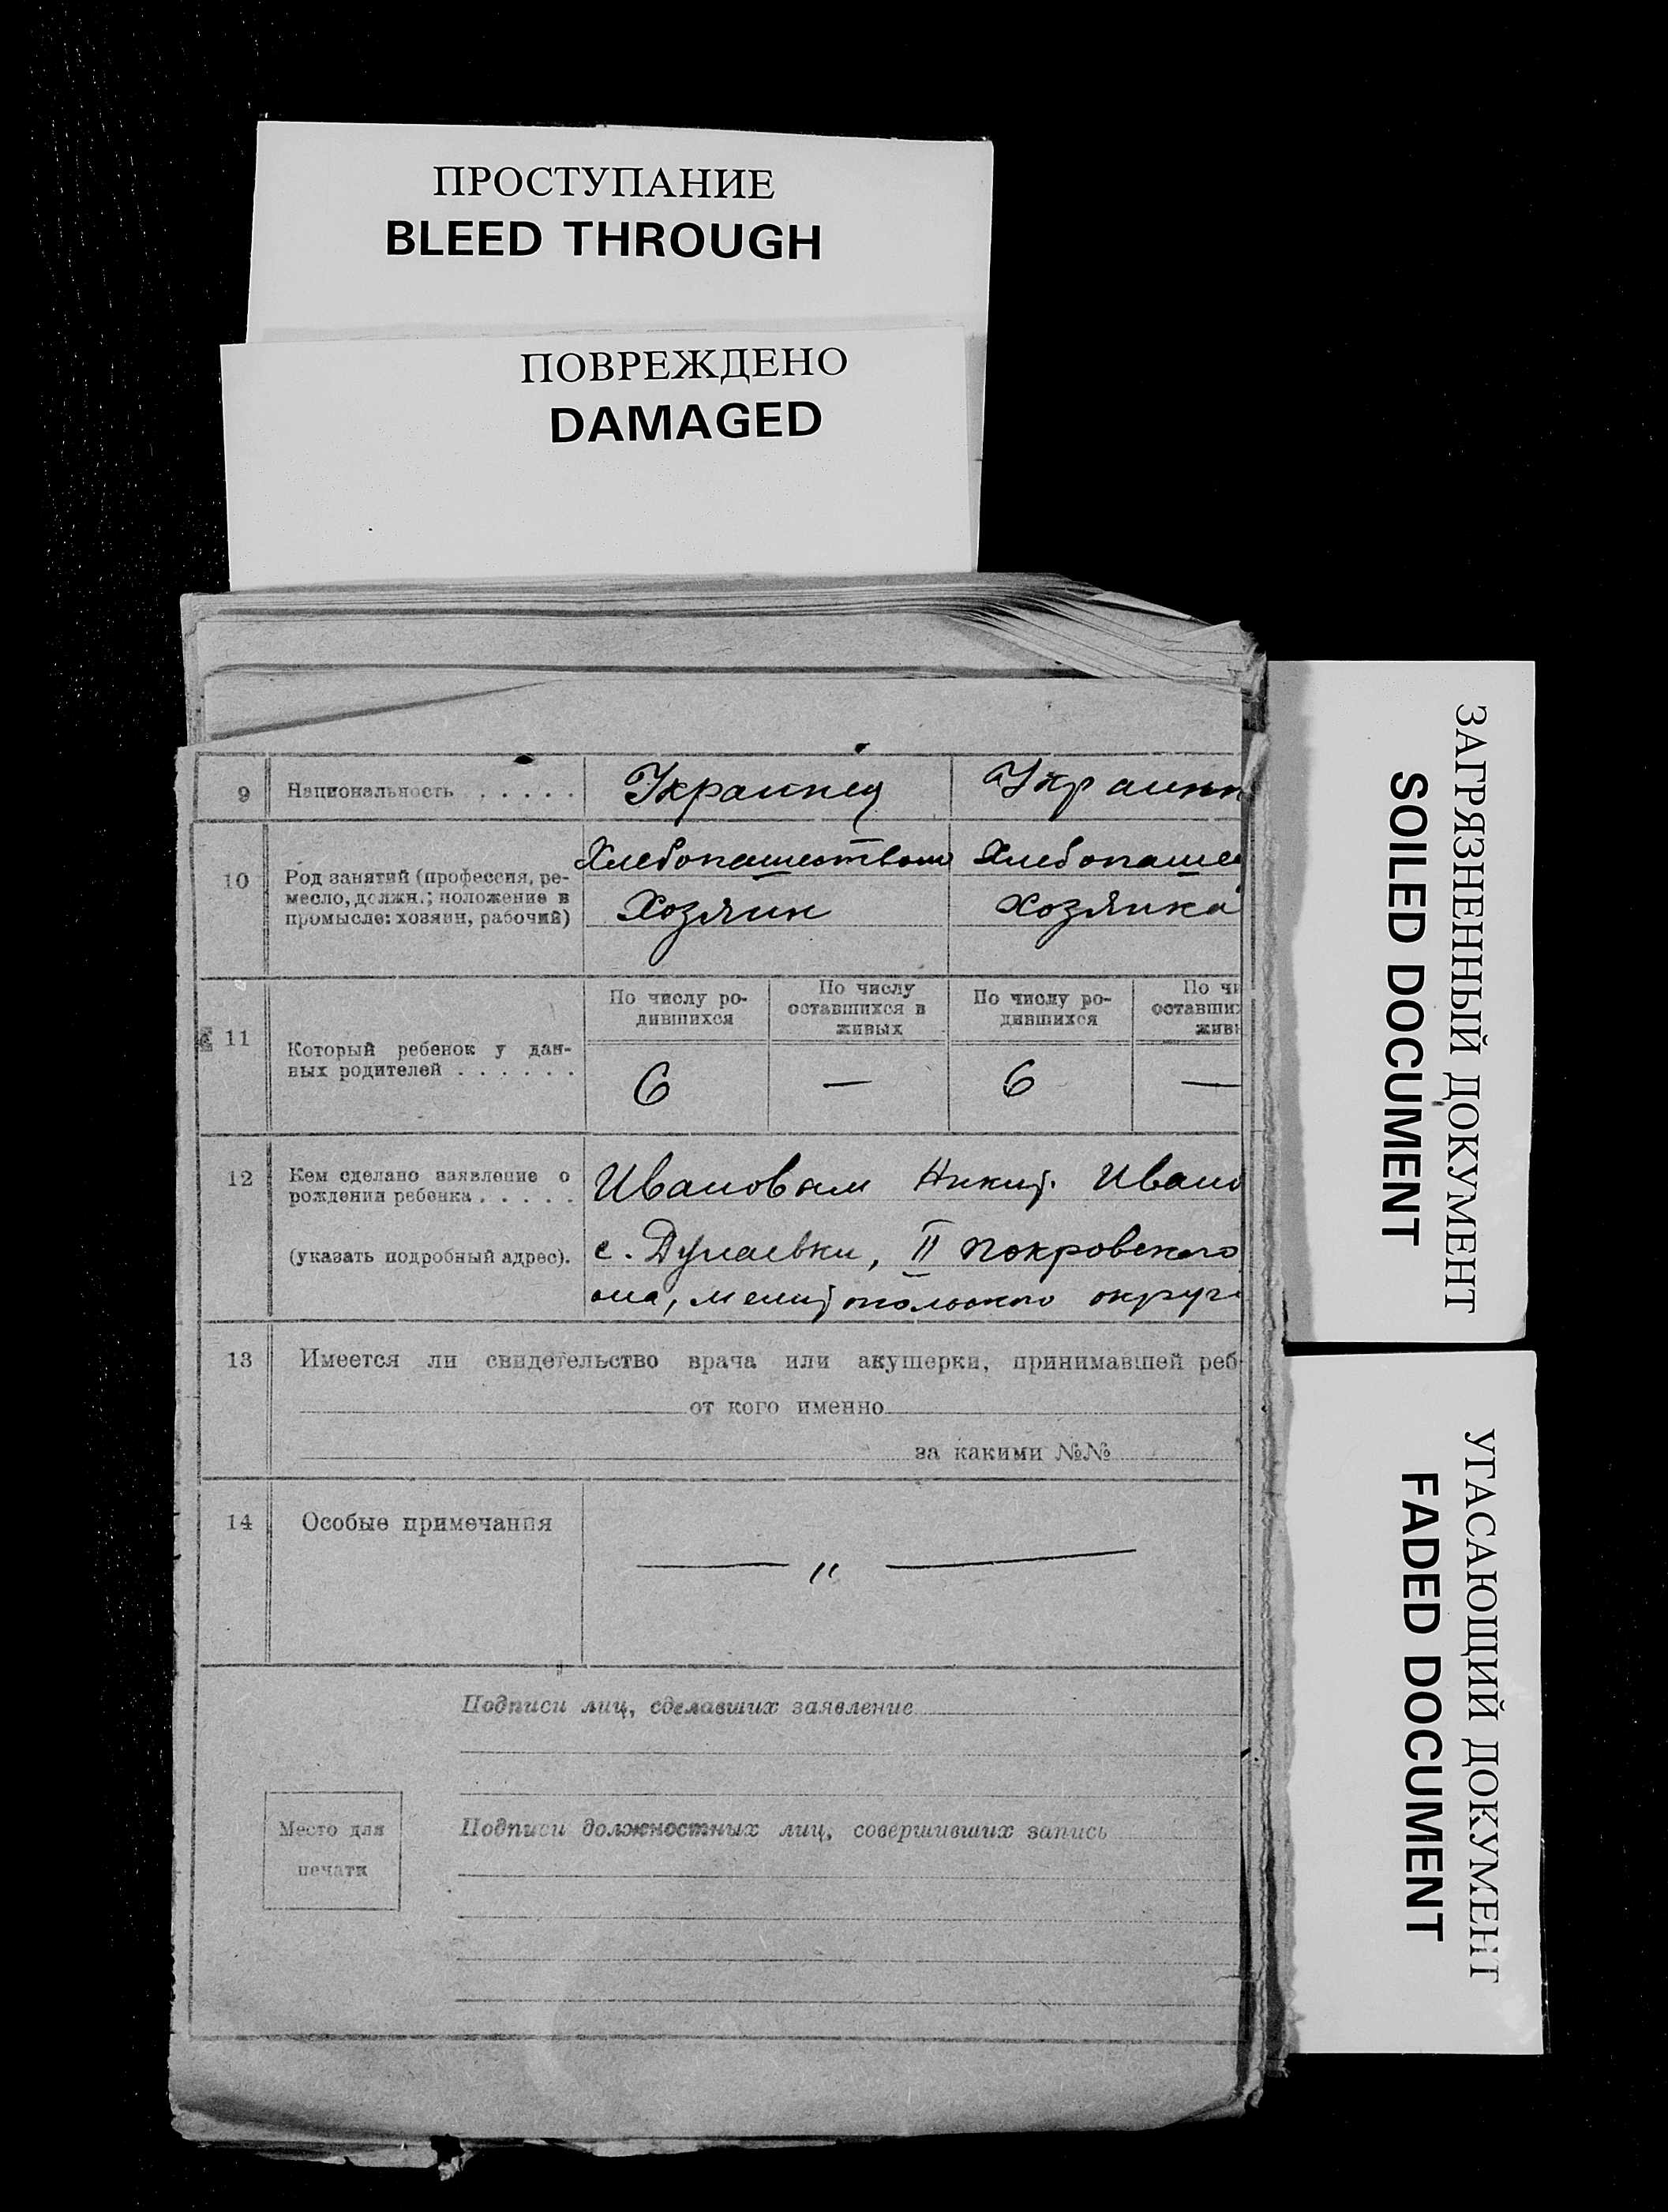 ПРОСТУПАНИЕ
BLEED THROUGH
ПОВРЕЖДЕНО
DAMAGED
ЗАГРЯЗНЕННЫЙ ДОКУМЕНТ
SOILED DOCUMENT
УГАСАЮЩИЙ ДОКУМЕНТ
FADED DOCUMENT
9 Национальность . . . . . . Украинец Украинк
10 Род занятий (профессия, ре-
месло, должн.; положение в
промысле: хозяин, рабочий)
Хлебопашеством Хлебопаше
Хозяин Хозяйка
11 Который ребенок у дан-
ных родителей . . . . . .
По числу ро-
дившихся
По числу
оставшихся в
живых
По числу ро-
дившихся
По чи
оставших
живы
6 — 6 —
12 Кем сделано заявление о
рождении ребенка . . . . .
(указать подробный адрес).
Ивановым Никит. Ивано
с. Дунаевки, II Покровского
она, мелитопольского округ
13 Имеется ли свидетельство врача или акушерки, принимавшей реб
от кого именно
за какими №№
14 Особые примечания
— „ —
Подписи лиц, сделавших заявление
Место для
печати
Подписи должностных лиц, совершивших запись